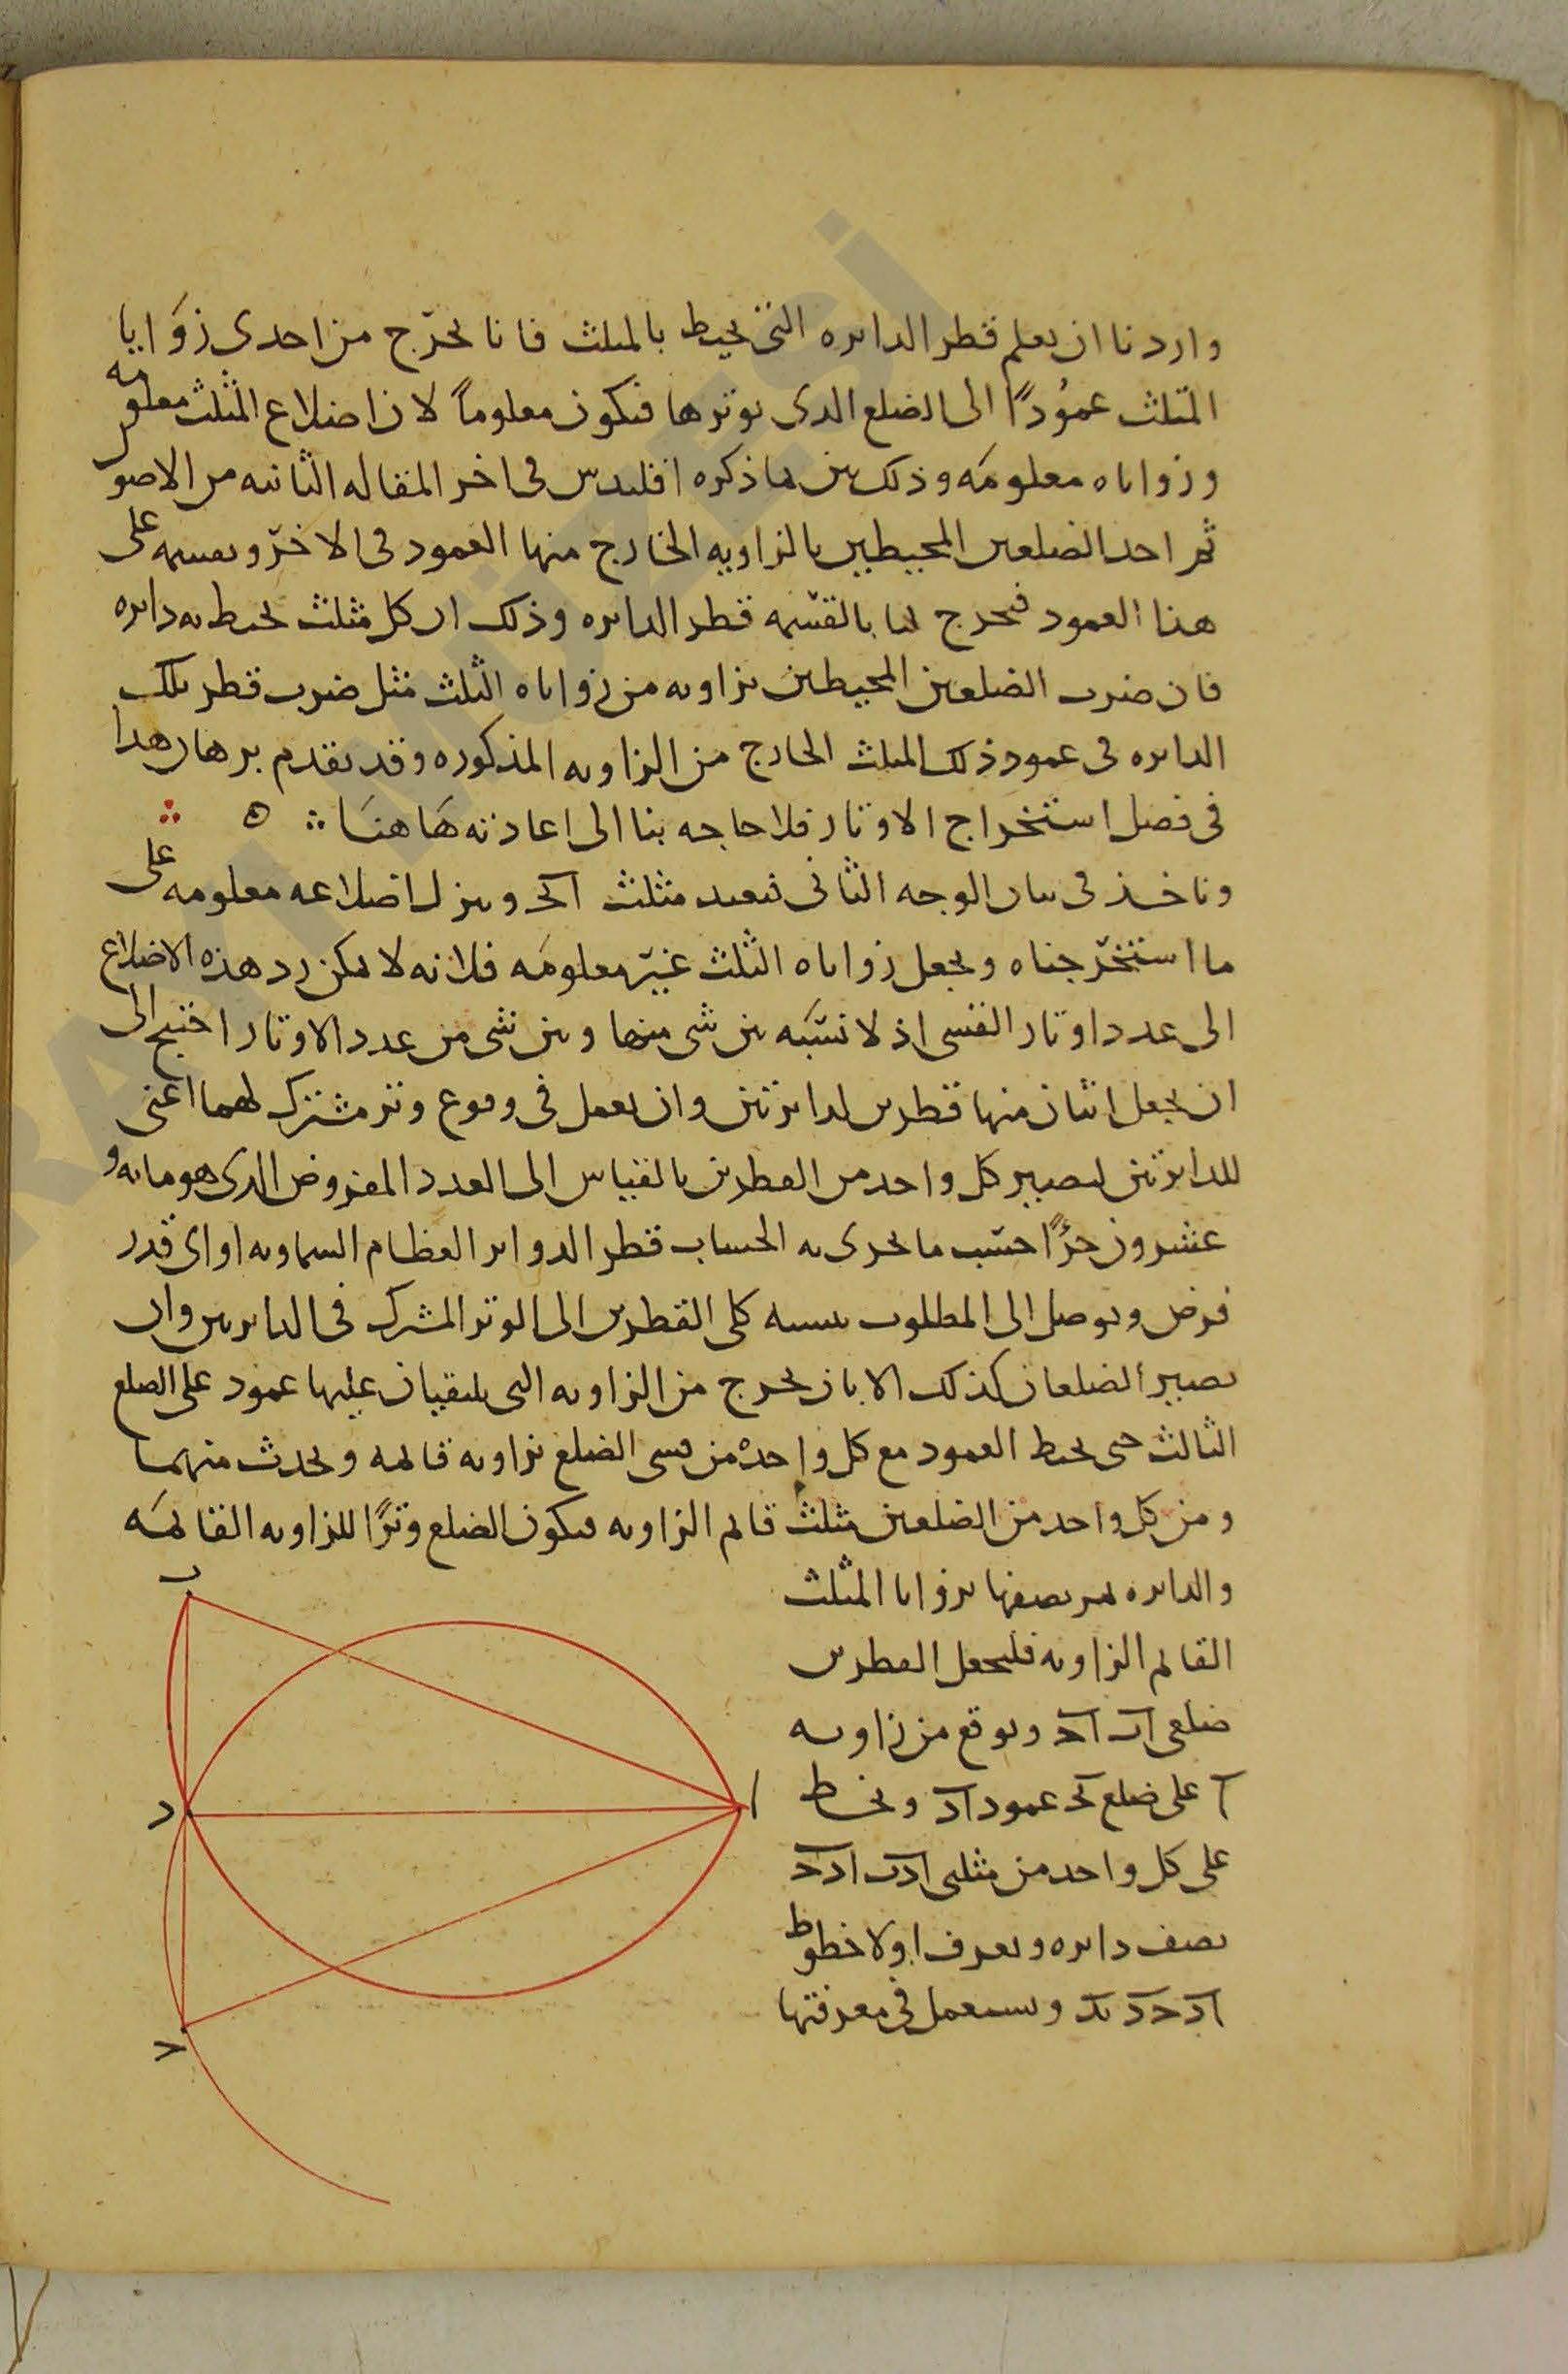 واردنا ان نعلم قطر الدايره التي تحيط بالمثلث فانا نخرج من احدى زوايا
المثلث عمودًا الى الضلع الدى يوترها فيكون معلوماً لان اضلاع المثلث معلومه
وزواياه معلومه وذلك بين مما ذكره اقليدس فى اخر المقاله الثانيه من الاصول
ثم احد الضلعين المحيطين بالزاويه الخارج منها العمود فى الاخر ونقسمه على
هذا العمود فيخرج لنا بالقسمه قطر الدايره وذلك ان كل مثلث تحيط به دايره
فان ضرب الضلعين المحيطين بزاويه من زواياه الثلث مثل ضرب قطر تلك
الدايره فى عمود ذلك المثلث الخارج من الزاويه المذكوره وقد تقدم برهان هدا
فى فصل استخراج الاوتار فلا حاجه بنا الى اعادته هاهنا ه
وناخذ فى بيان الوجه الثانى فنعيد مثلث ابح وننزل اضلاعه معلومه على
ما استخرجناه ونجعل زواياه الثلث غير معلومه فلانه لا يمكن رد هذه الاضلاع
الى عدد اوتار القسى اذ لا نسبه بين شى منها وبين شى من عدد الاوتار احتيج الى
ان نجعل اثنان منها قطرين لدايرتين وان نعمل فى وقوع وتر مشترك لهما اعنى
للدايرتين ليصير كل واحد من القطرين بالقياس الى العدد المفروض الدى هو مايه و
عشرون جزًا حسب ما نجرى به الحساب قطر الدواير العظام السماويه او اى قدر
فرض ونوصل الى المطلوب بنسبه كلى القطرين الى الوتر المشترك فى الدايرتين ولن
يصير الضلعان كذلك الا بان نخرج من الزاويه التى يلتقيان عليها عمود على الضلع
الثالث حتى يحيط العمود مع كل واحده من قسمى الضلع بزاويه قايمه ويحدث منهما
ومن كل واحد من الضلعين مثلث قايم الزاويه فيكون الضلع وترًا للزاويه القايمه
والدايره يمر نصفها بزوايا المثلث
القايم الزاويه فليجعل القطرين
ضلعى اب اح ونوقع من زاويه
ا على ضلع بح عمود اد ونخط
على كل واحد من مثلثى ادب ادح
نصف دايره ونعرف اولا خطوط
اد حد بد ونستعمل فى معرفتها
ب
ا
د
ح